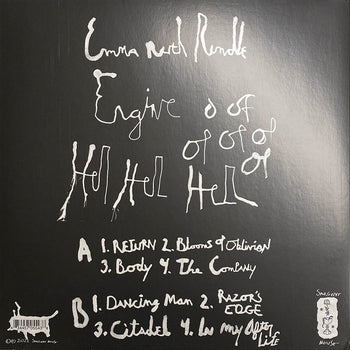 Emma Ruth Rundle
Engine of of
of of of
Hel Hell Hell of
A 1. RETURN 2. Blooms of Oblivion
3. Body 4. The Company
B 1. Dancing Man 2. RAZOR'S EDGE
3. Citadel 4. In my After Life
SARGENT
HOUSE